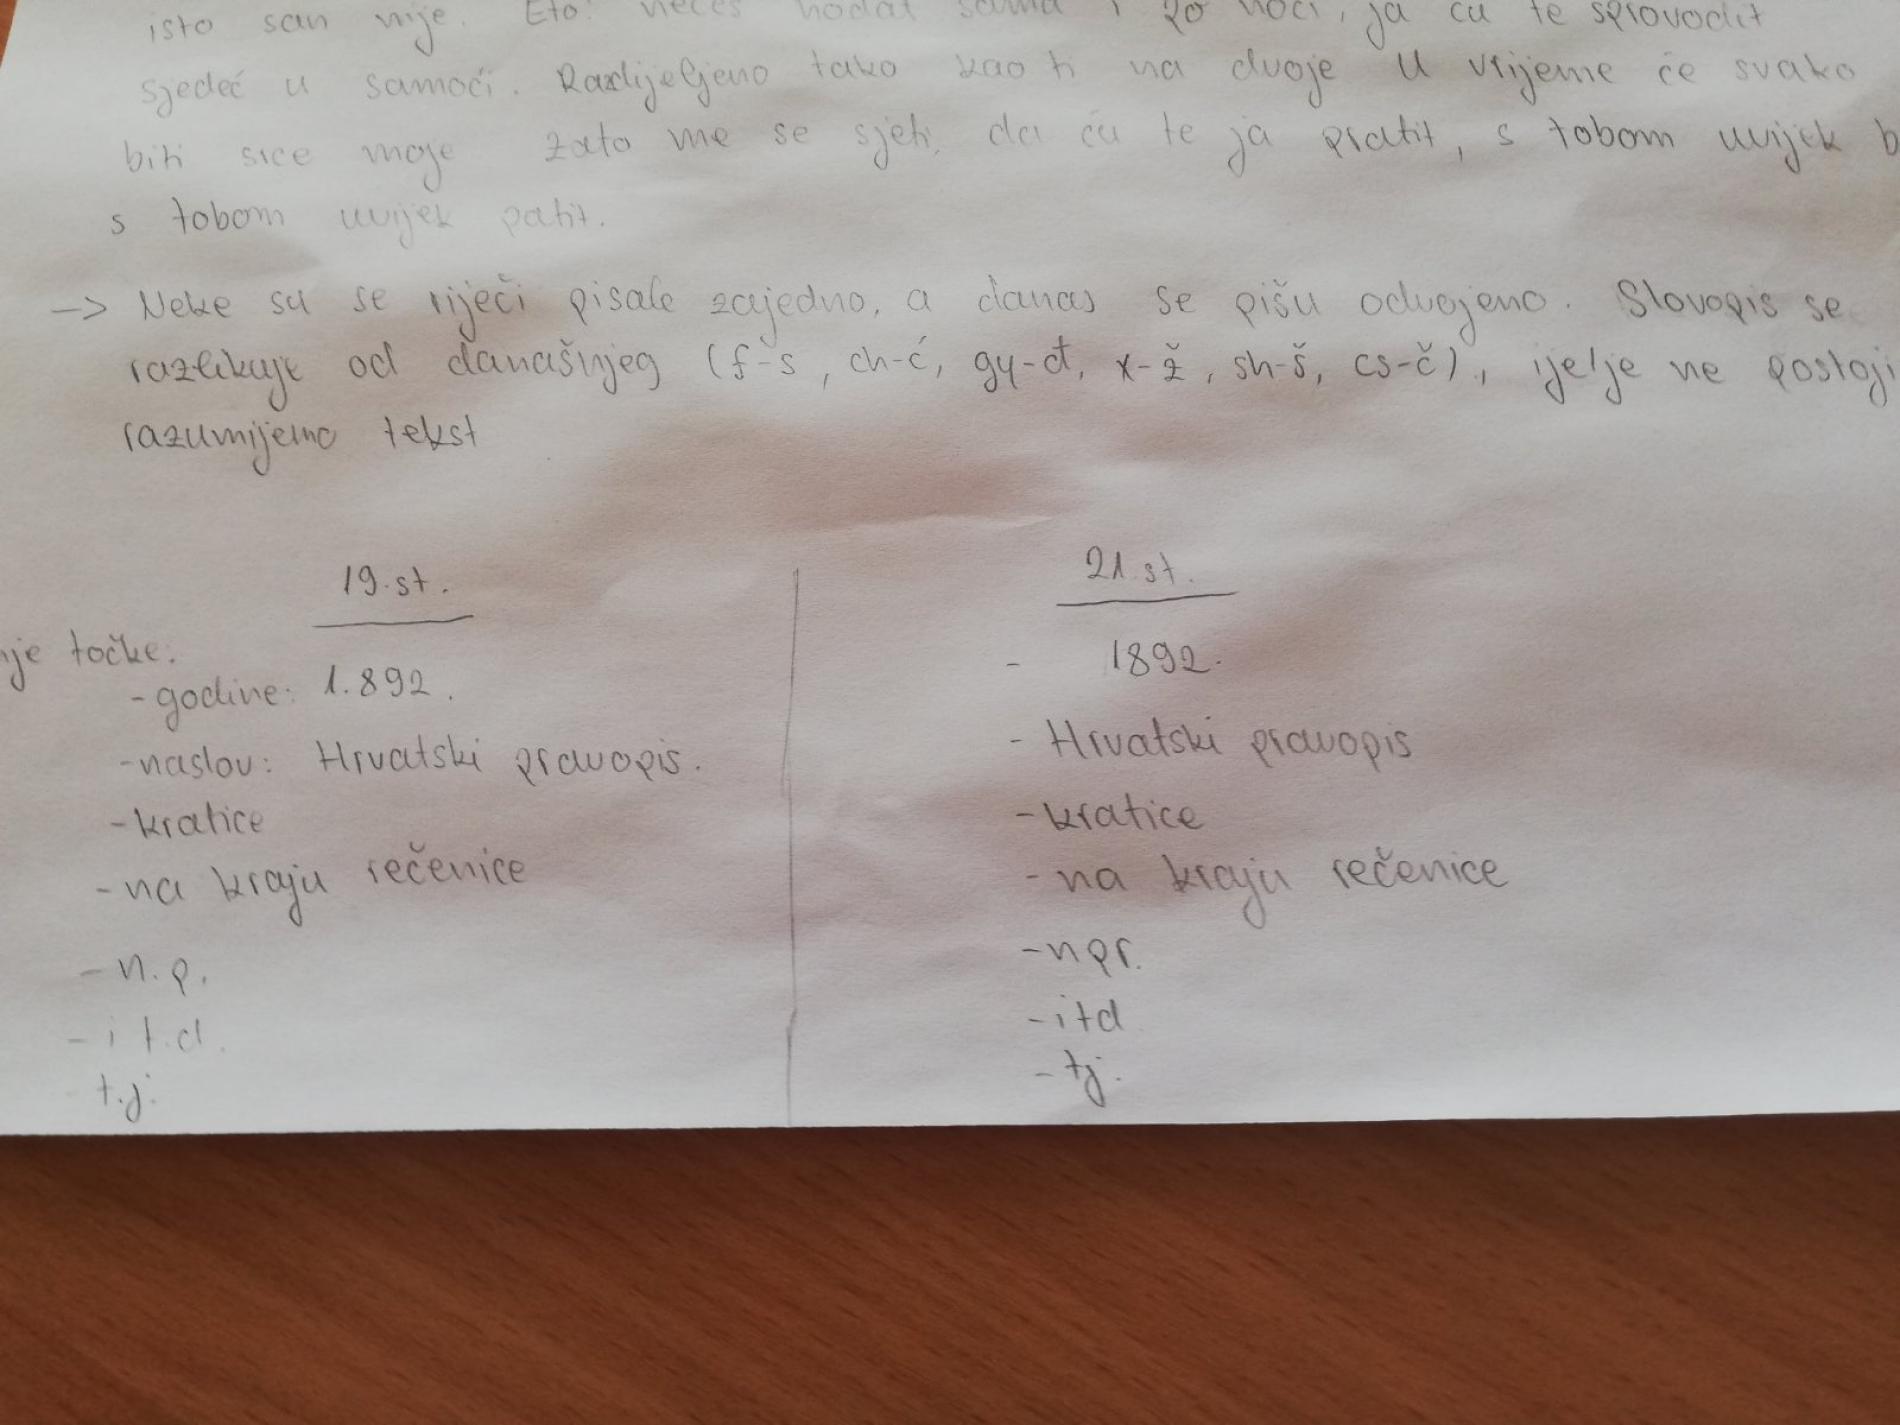 isto san nije. Eto! nećeš hodat sama i po noći, ja ću te sprovodit
sjedeć u samoći. Razdijeljeno tako kao ti na dvoje u vrijeme će svako
biti srce moje zato me se sjeti, da ću te ja pratit, s tobom uvijek b
s tobom uvijek patit.
-> Neke su se riječi pisale zajedno, a danas se pišu odvojeno. Slovopis se
razlikuje od današnjeg (f-s, ch-ć, gy-đ, x-ž, sh-š, cs-č), ije/je ne postoji
razumijemo tekst
19.st. 21.st.
nje točke:
-godine: 1.892. - 1892.
-naslov: Hrvatski pravopis. - Hrvatski pravopis
-kratice -kratice
-na kraju rečenice -na kraju rečenice
-n.p. -npr.
-i t.d. -itd
t.j. -tj.